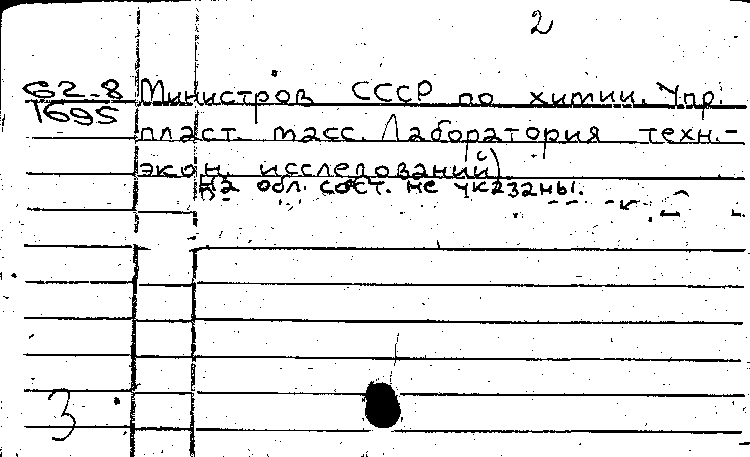 2
G2-8 Министров СССР по химии. Упр.
1695
пласт. масс. Лаборатория техн.-
экон. исследований)
На обл. сост. не указаны.
3